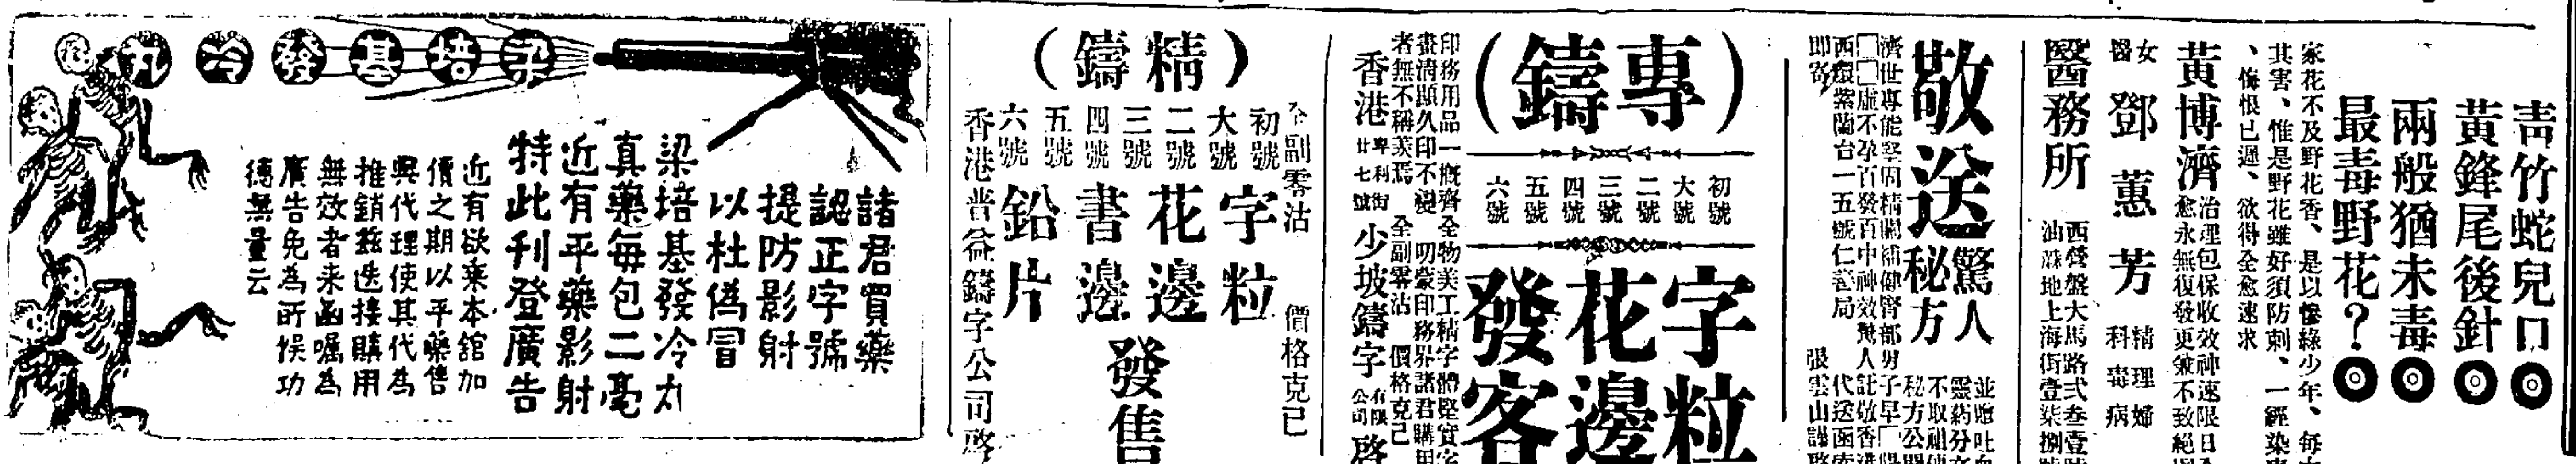 青竹蛇兒口
黃鋒尾後針
兩般猶未毒
最毒野花？
家花不及野花香、是以慘綠少年、每
其害、惟是野花雖好須防刺、一經染
、悔恨已遲、欲得全愈速求
黃博濟
治理包保收效神速限日
愈永無復發更兼不致絕
女醫
鄧蕙芳
精理婦科毒病
醫務所
西營盤大馬路弍叁壹號
油蔴地上海街壹柒捌號
敬送
驚人秘方
並贈吐血
靈葯分文
不取祖傳
秘方公開
濟世專能堅固精關補健腎部男子早
虛不孕百發百中神效驚人託敬香港
西環紫蘭台一五號仁醫局
代送函索
即寄
張雲山謹啓
（專鑄）
初號
大號
二號
三號
四號
五號
六號
字粒
花邊
發客
印務用品一概齊全物美工精字體堅實字
畫清顯久印不變
明蒙印務界諸君購用
者無不稱羨焉
全副零沽
價格克己
香港
卑利街
廿七號
少坡鑄字
有限公司
啓
（精鑄）
全副零沽
價格克己
初號
大號
二號
三號
四號
五號
六號
字粒
花邊
書邊
鉛片
發售
香港普益鑄字公司啓
梁培基發冷丸
諸君買藥
認正字號
提防影射
以杜偽冒
梁培基發冷丸
真藥每包二毫
近有平藥影射
特此刊登廣告
近有欲來本館加
價之期以平藥售
與代理使其代為
推銷茲迭接購用
無效者來函囑為
廣告免為所悞功
德無量云